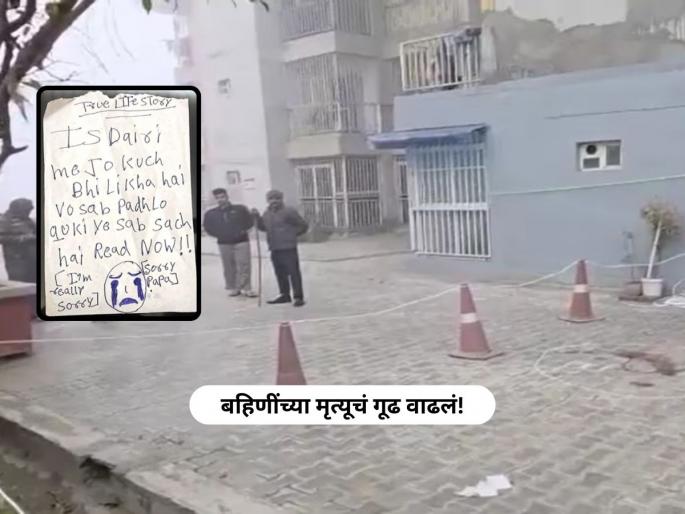 True Life Story
Is Dairi
me Jo kuch
Bhi likha hai
Vo sab Padhlo
quki ye sab sach
hai Read Now!!
[I'm
really
sorry]
[Sorry
Papa]
बहिणींच्या मृत्यूचं गूढ वाढलं!